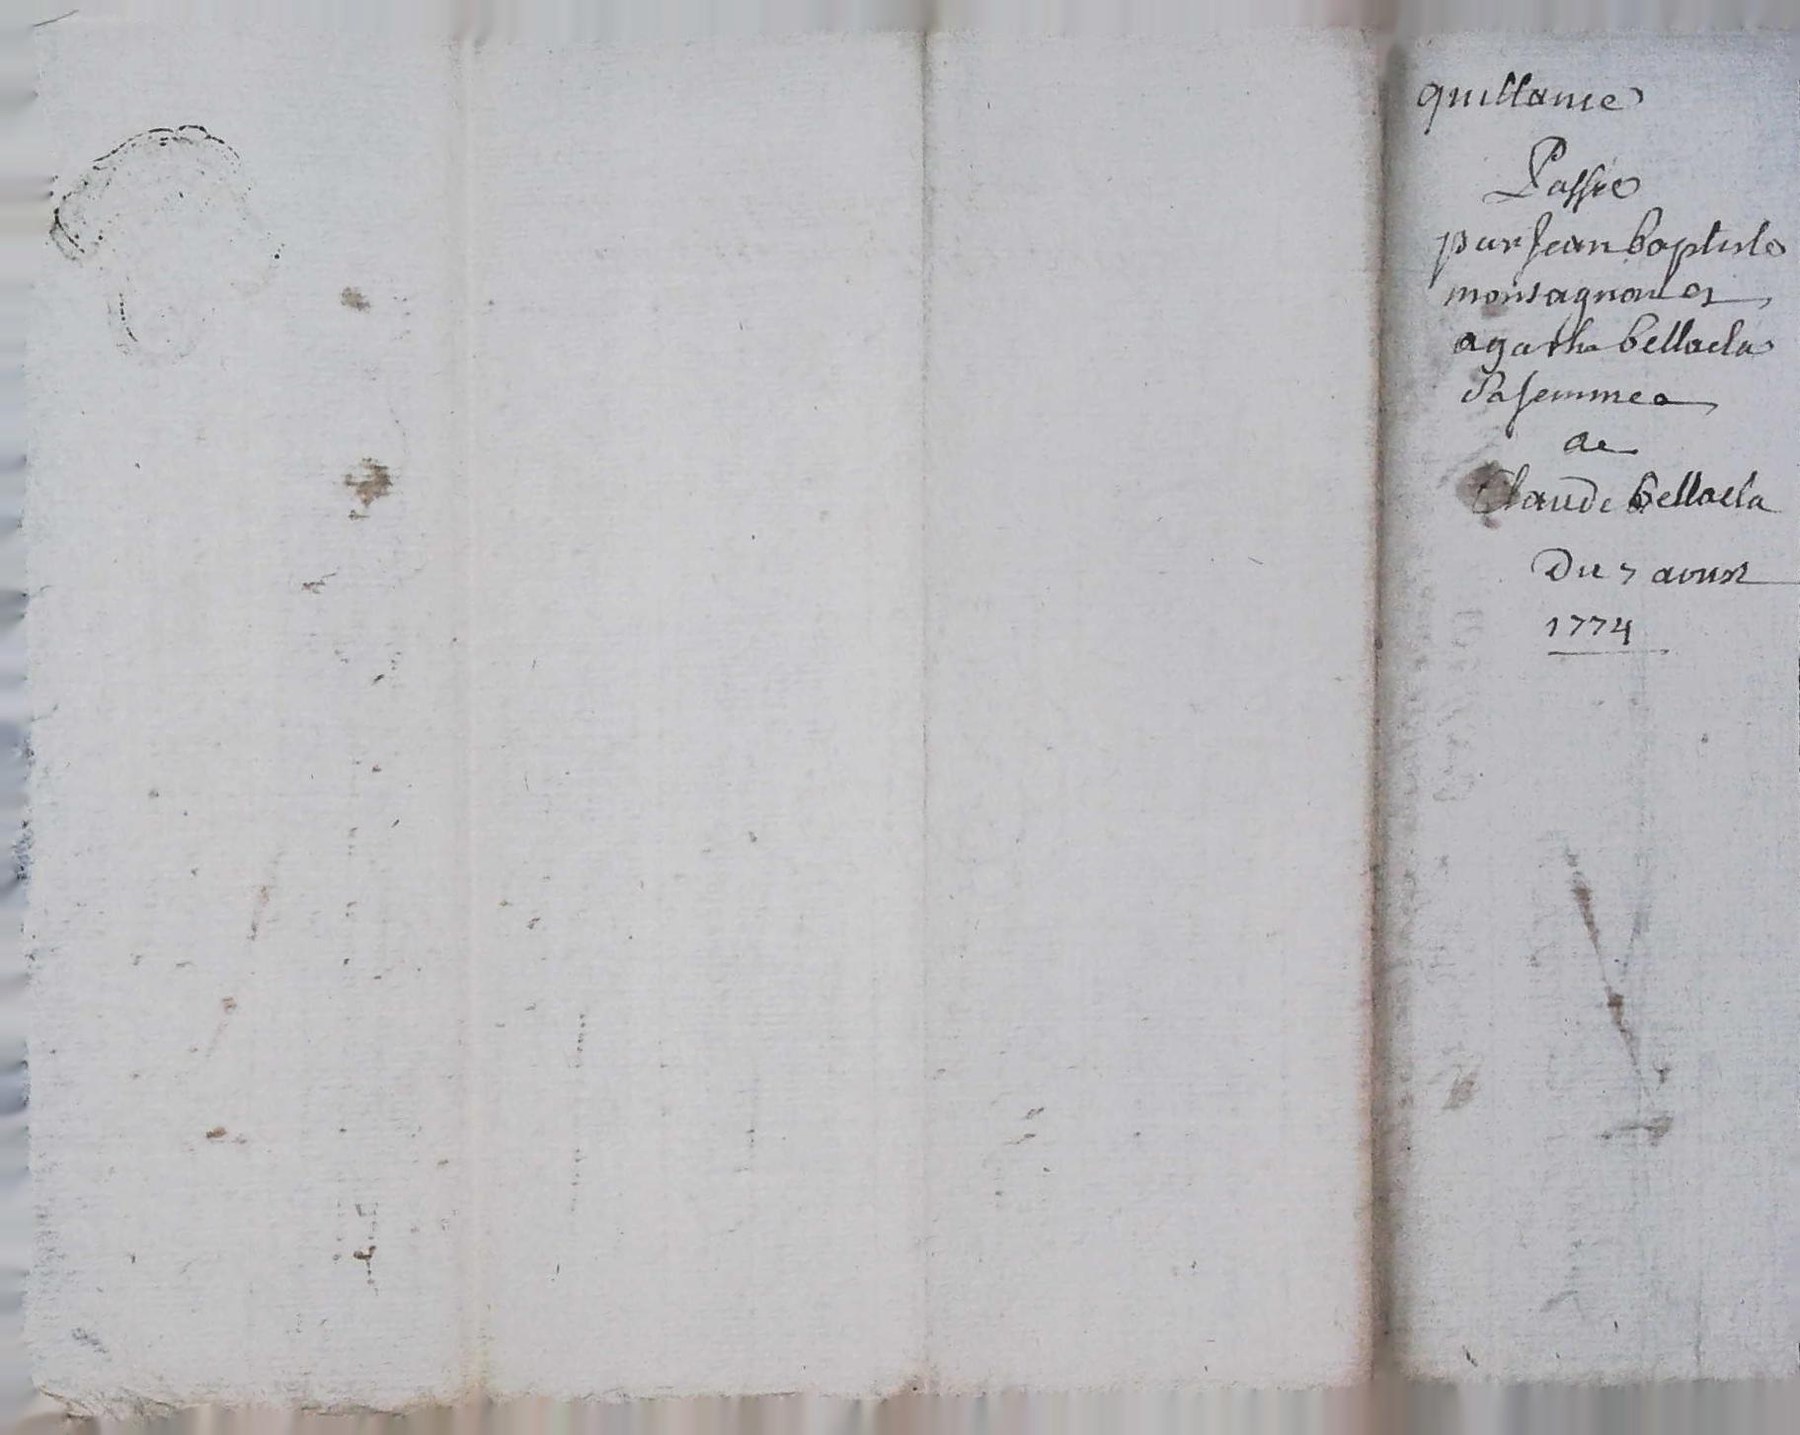 quittance
Passée
par Jean baptiste
montagnon et
agathe bellacla
Sa femme a
de
Claude bellacla
Du 7 aoust
1774